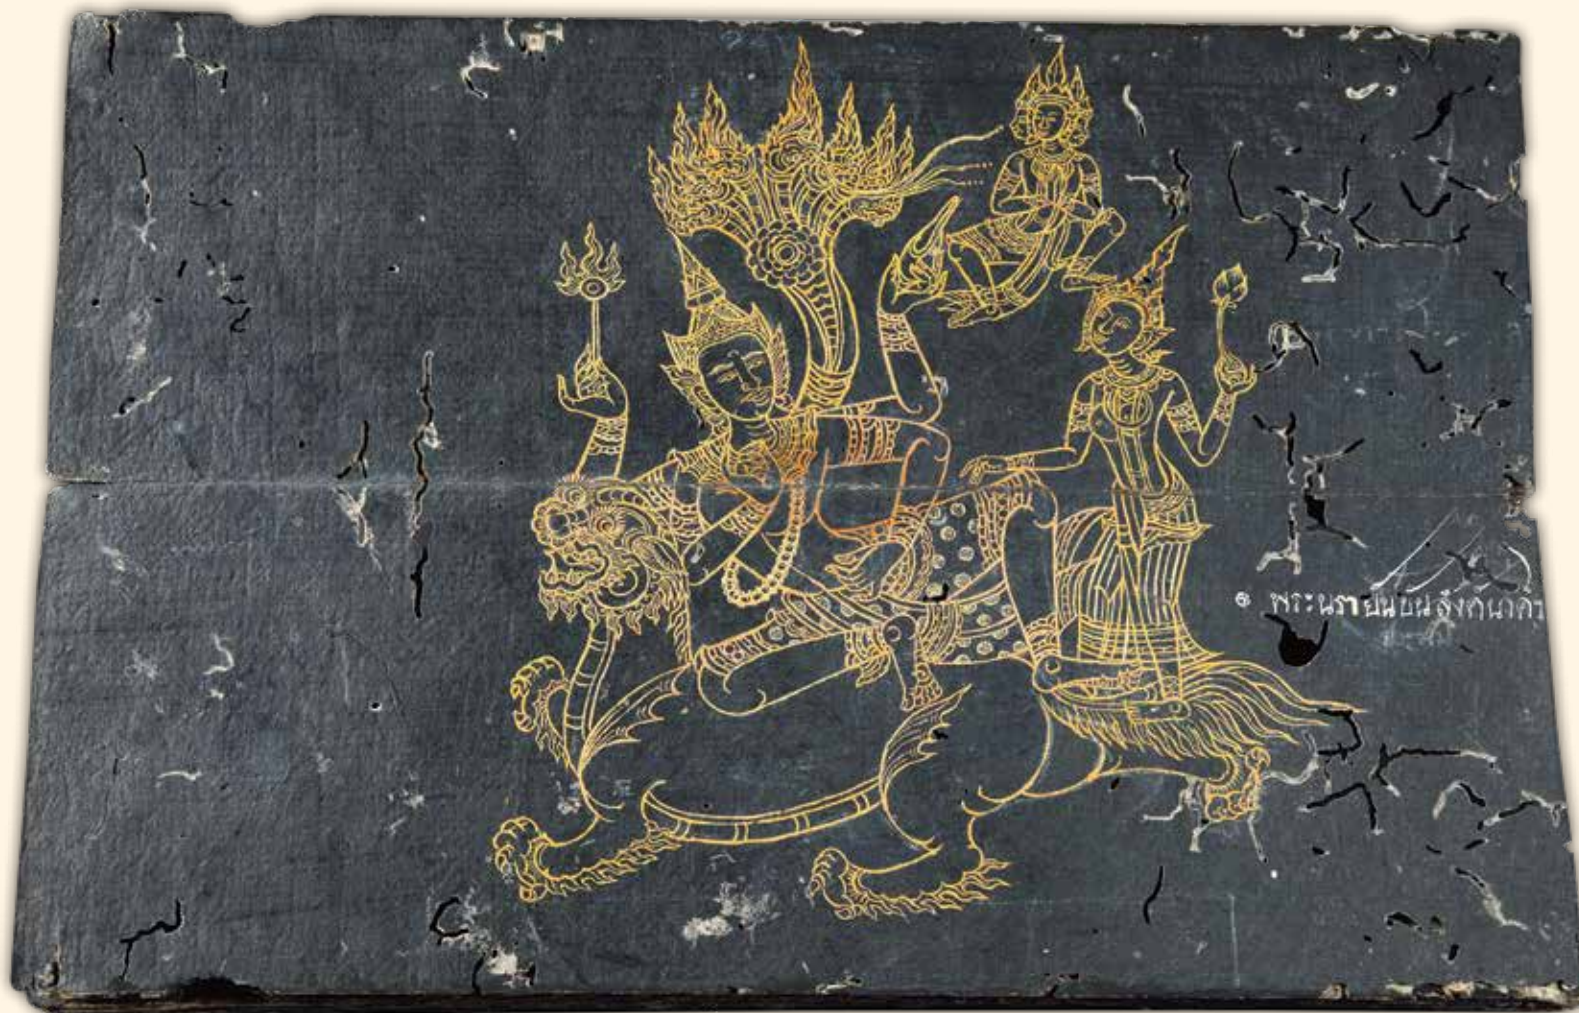 ๏ พระนรายนบนลังคนาค